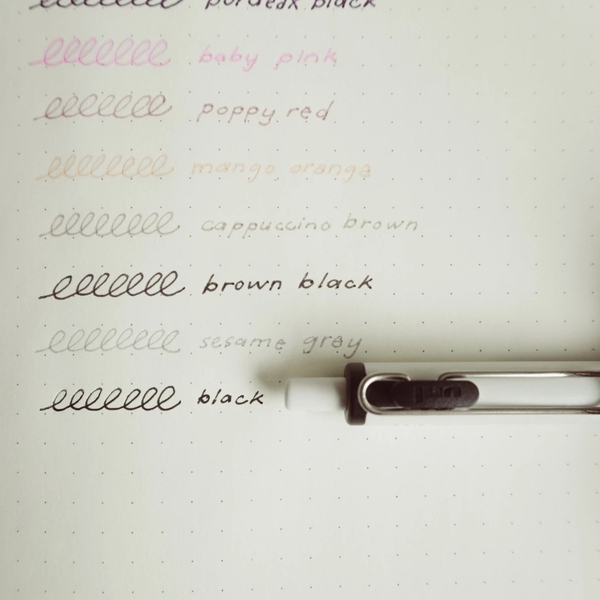 bordeax black
baby pink
poppy red
mango orange
cappuccino brown
brown black
sesame gray
black